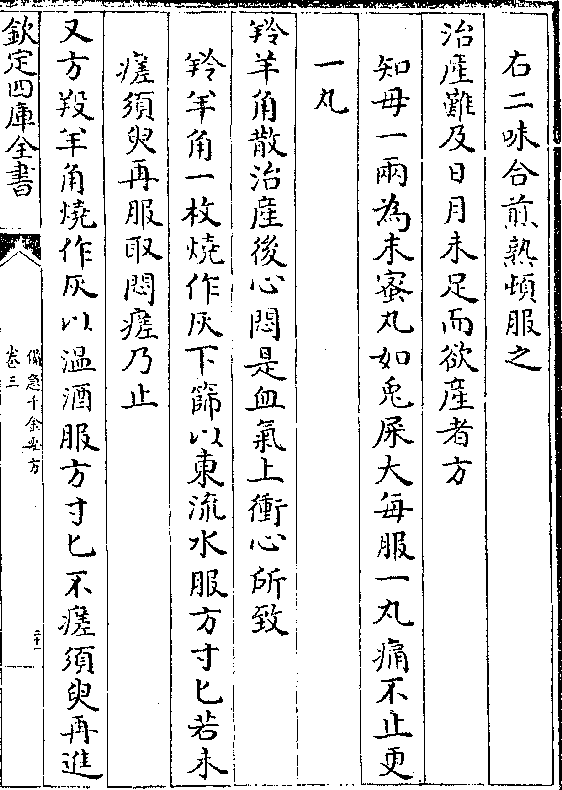 右二味合煎熟頓服之
治産難及日月未足而欲産者方
知母一兩為末蜜丸如兎屎大每服一丸痛不止更
一丸
羚羊角散治産後心悶是血氣上衝心所致
羚羊角一枚燒作灰下篩以東流水服方寸匕若未
瘥須臾再服取悶瘥乃止
又方羖羊角燒作灰以温酒服方寸匕不瘥須臾再進
欽定四庫全書
備急千金要方
卷三